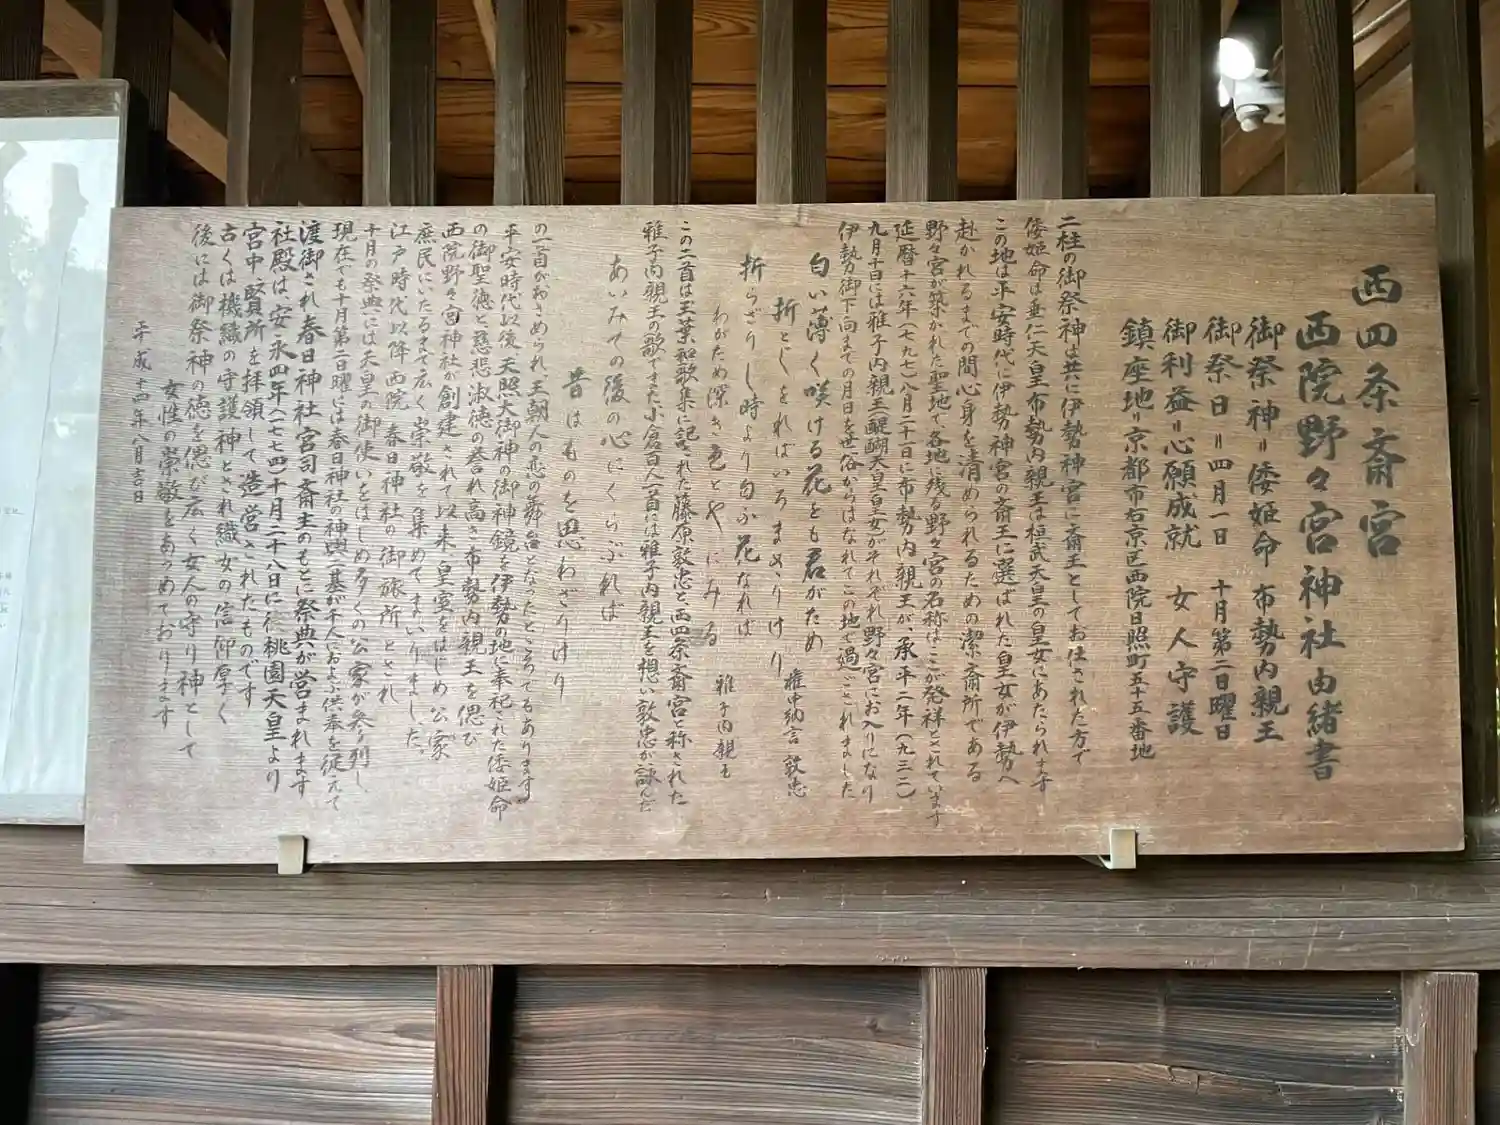 西四条斎宮
西院野々宮神社由緒書
御祭神＝倭姫命　布勢内親王
御祭日＝四月一日　十月第二日曜日
御利益＝心願成就　女人守護
鎮座地＝京都市右京区西院日照町五十五番地
二柱の御祭神は共に伊勢神宮に斎王としてお仕された方で
倭姫命は垂仁天皇布勢内親王は桓武天皇の皇女にあたられます
この地は平安時代に伊勢神宮の斎王に選ばれた皇女が伊勢へ
赴かれるまでの間心身を清められるための潔斎所である
野々宮が築かれた聖地で、各地に残る野々宮の名称はここが発祥とされています
延暦十六年（七九七）八月二十一日に布勢内親王が、承平二年（九三二）
九月十日には雅子内親王（醍醐天皇皇女）がそれぞれ野々宮にお入りになり
伊勢御下向までの月日を世俗からはなれてこの地で過ごされました
匂い薄く咲ける花をも君がため
折としをればいろまさりけり
権中納言　敦忠
折らざりし時より匂ふ花なれば
わがため深き色とやにみる
雅子内親王
この二首は玉葉和歌集に記された藤原敦忠と、西四条斎宮と称された
雅子内親王の歌でまた小倉百人一首には雅子内親王を想い敦忠が詠んだ
あいみての後の心にくらぶれば
昔はものを思わざりけり
の一首がおさめられ王朝人の恋の舞台となったところでもあります
平安時代以後天照大御神の御神鏡を伊勢の地に奉祀された倭姫命
の御聖徳と慈悲淑徳の誉れ高き布勢内親王を偲び
西院野々宮神社が創建されて以来皇室をはじめ公家
庶民にいたるまで広く崇敬を集めてまいりました。
江戸時代以降西院春日神社の御旅所とされ
十月の祭典には天皇の御使いをはじめ多くの公家が参列し
現在でも十月第二日曜には春日神社の神輿二基が千人におよぶ供奉を従えて
渡御され春日神社宮司斎主のもとに祭典が営まれます
社殿は、安永四年（一七七四）十月二十八日に後桃園天皇より
宮中賢所を拝領して造営されたものです
古くは機織の守護神とされ織女の信仰厚く
後には御祭神の徳を偲び広く女人の守り神として
女性の崇敬をあつめております
平成十四年八月吉日